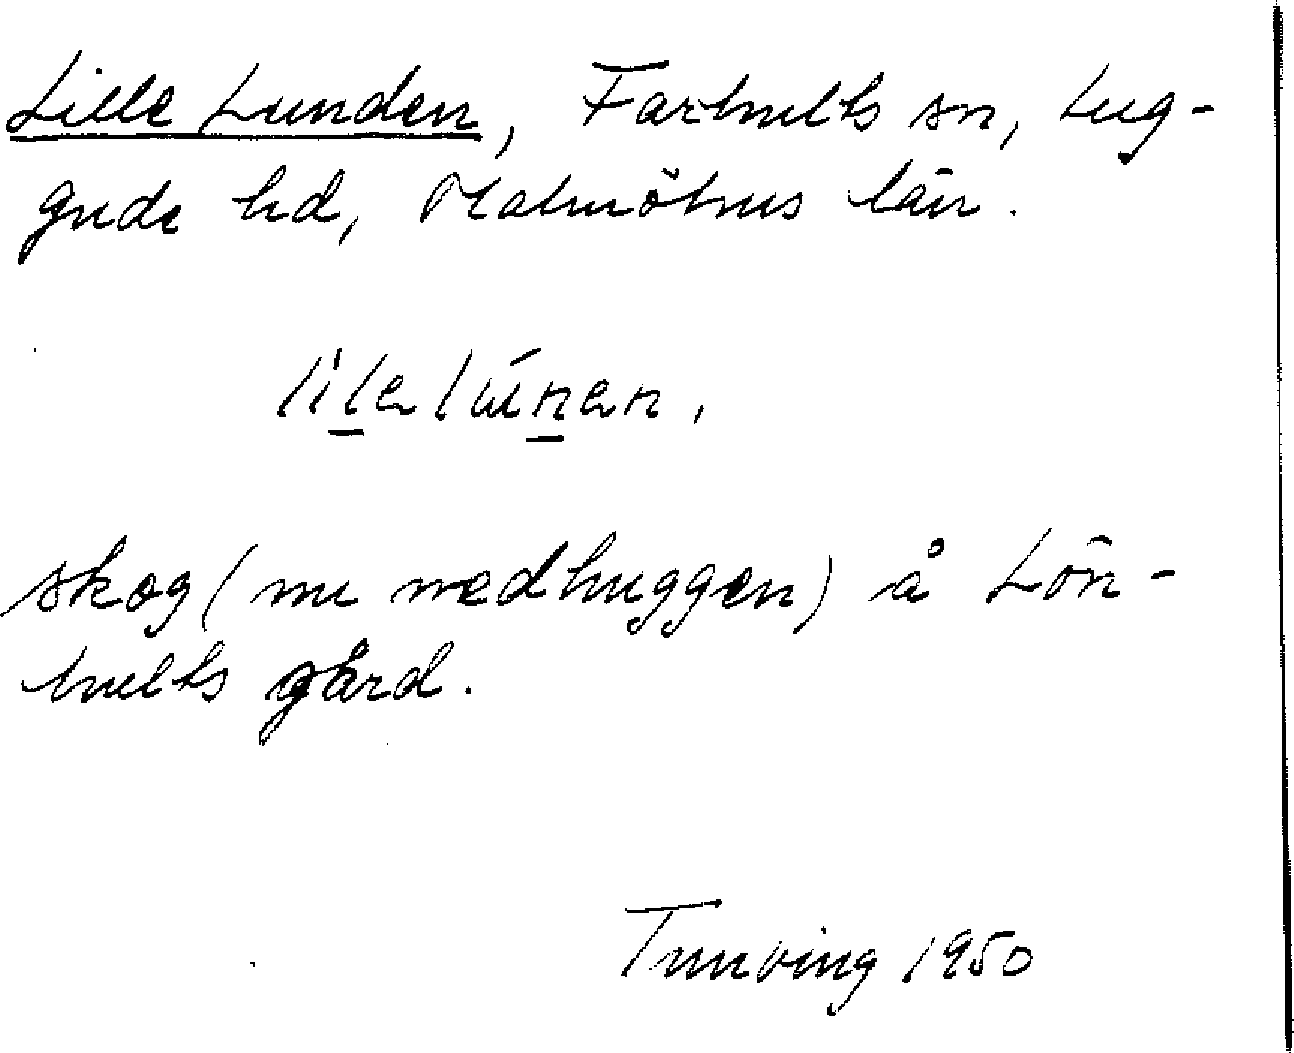 Lille Lunden, Farhults sn, Lug-
gude hd, Malmöhus län.
lilelúnen,
skog (nu nedhuggen) å Lön-
hults gård.
Tunving 1950